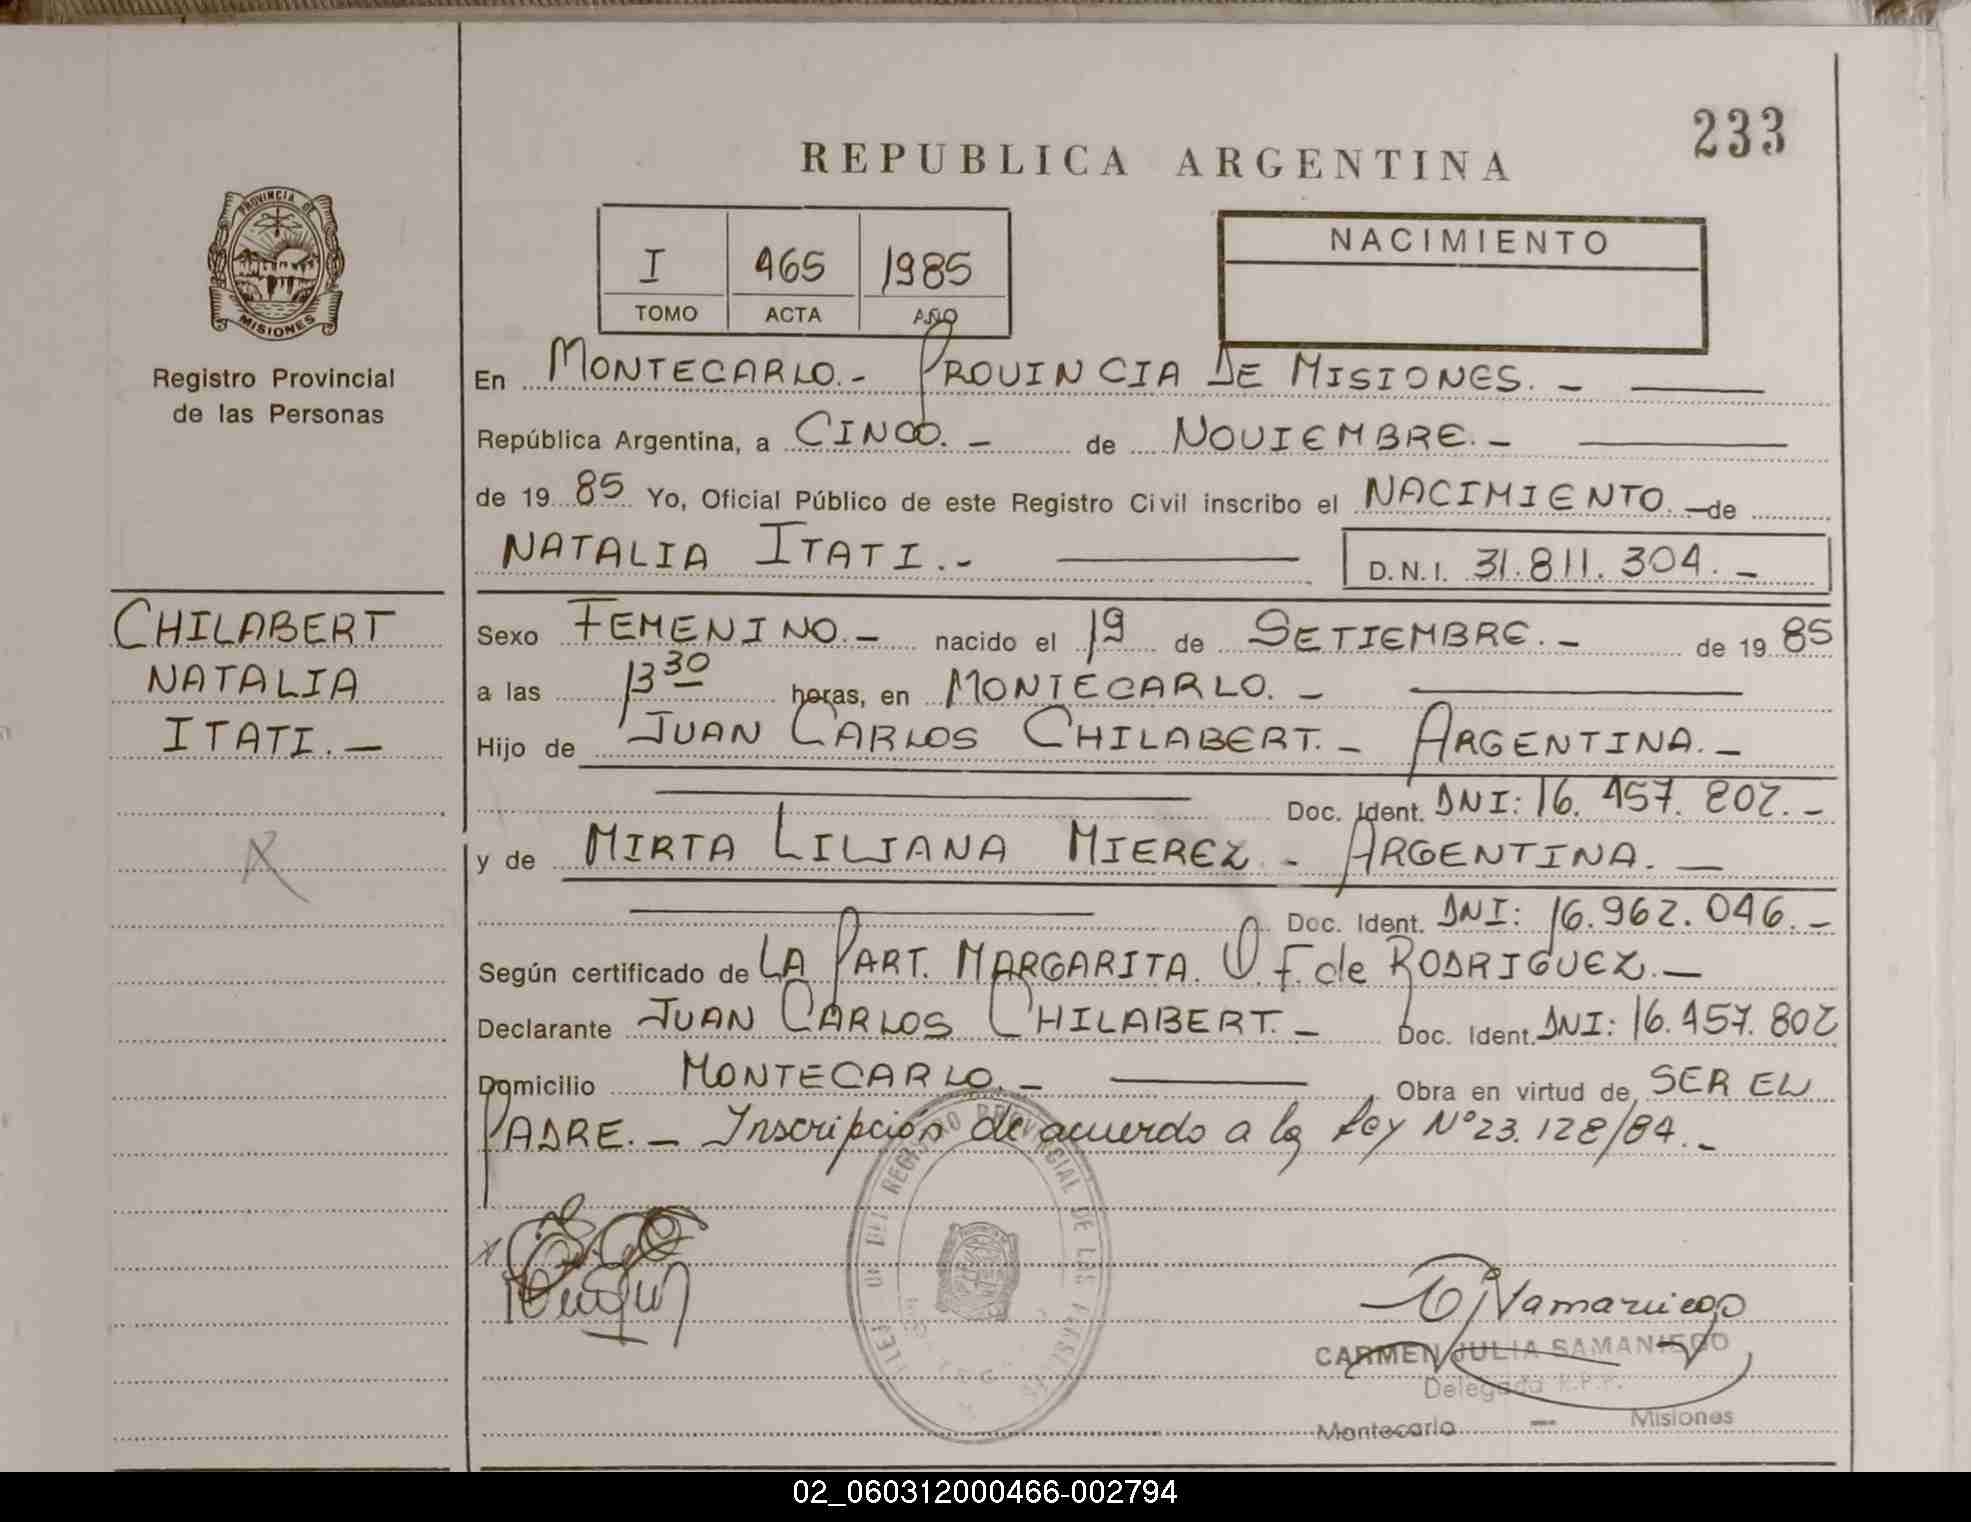 233
REPUBLICA ARGENTINA
PROVINCIA DE
MISIONES
Registro Provincial
de las Personas
I 465 1985
TOMO ACTA AÑO
NACIMIENTO
En MONTECARLO.- PROVINCIA DE MISIONES. -
República Argentina, a CINCO. - de NOVIEMBRE. -
de 19 85 Yo, Oficial Público de este Registro Civil inscribo el NACIMIENTO. - de
NATALIA ITATI. -
D.N.I. 31.811.304. -
CHILABERT
NATALIA
ITATI. -
Sexo FEMENINO. - nacido el 19 de SETIEMBRE. - de 19 85
a las 13 30 horas, en MONTECARLO. -
Hijo de JUAN CARLOS CHILABERT. - ARGENTINA. -
Doc. Ident. DNI: 16.457.802. -
y de MIRTA LILIANA MIEREZ - ARGENTINA. -
Doc. Ident. DNI: 16.962.046. -
Según certificado de LA PART. MARGARITA. O. F. de RODRIGUEZ. -
Declarante JUAN CARLOS CHILABERT. - Doc. Ident. DNI: 16.457.802
Domicilio MONTECARLO. - Obra en virtud de SER EL
PADRE. - Inscripción de acuerdo a la Ley Nº 23.128/84. -
DEL REGISTRO PROVINCIAL DE LAS PERSONAS
CARMEN JULIA SAMANIEGO
Delegada R.P.P.
Montecarlo - Misiones
02_060312000466-002794